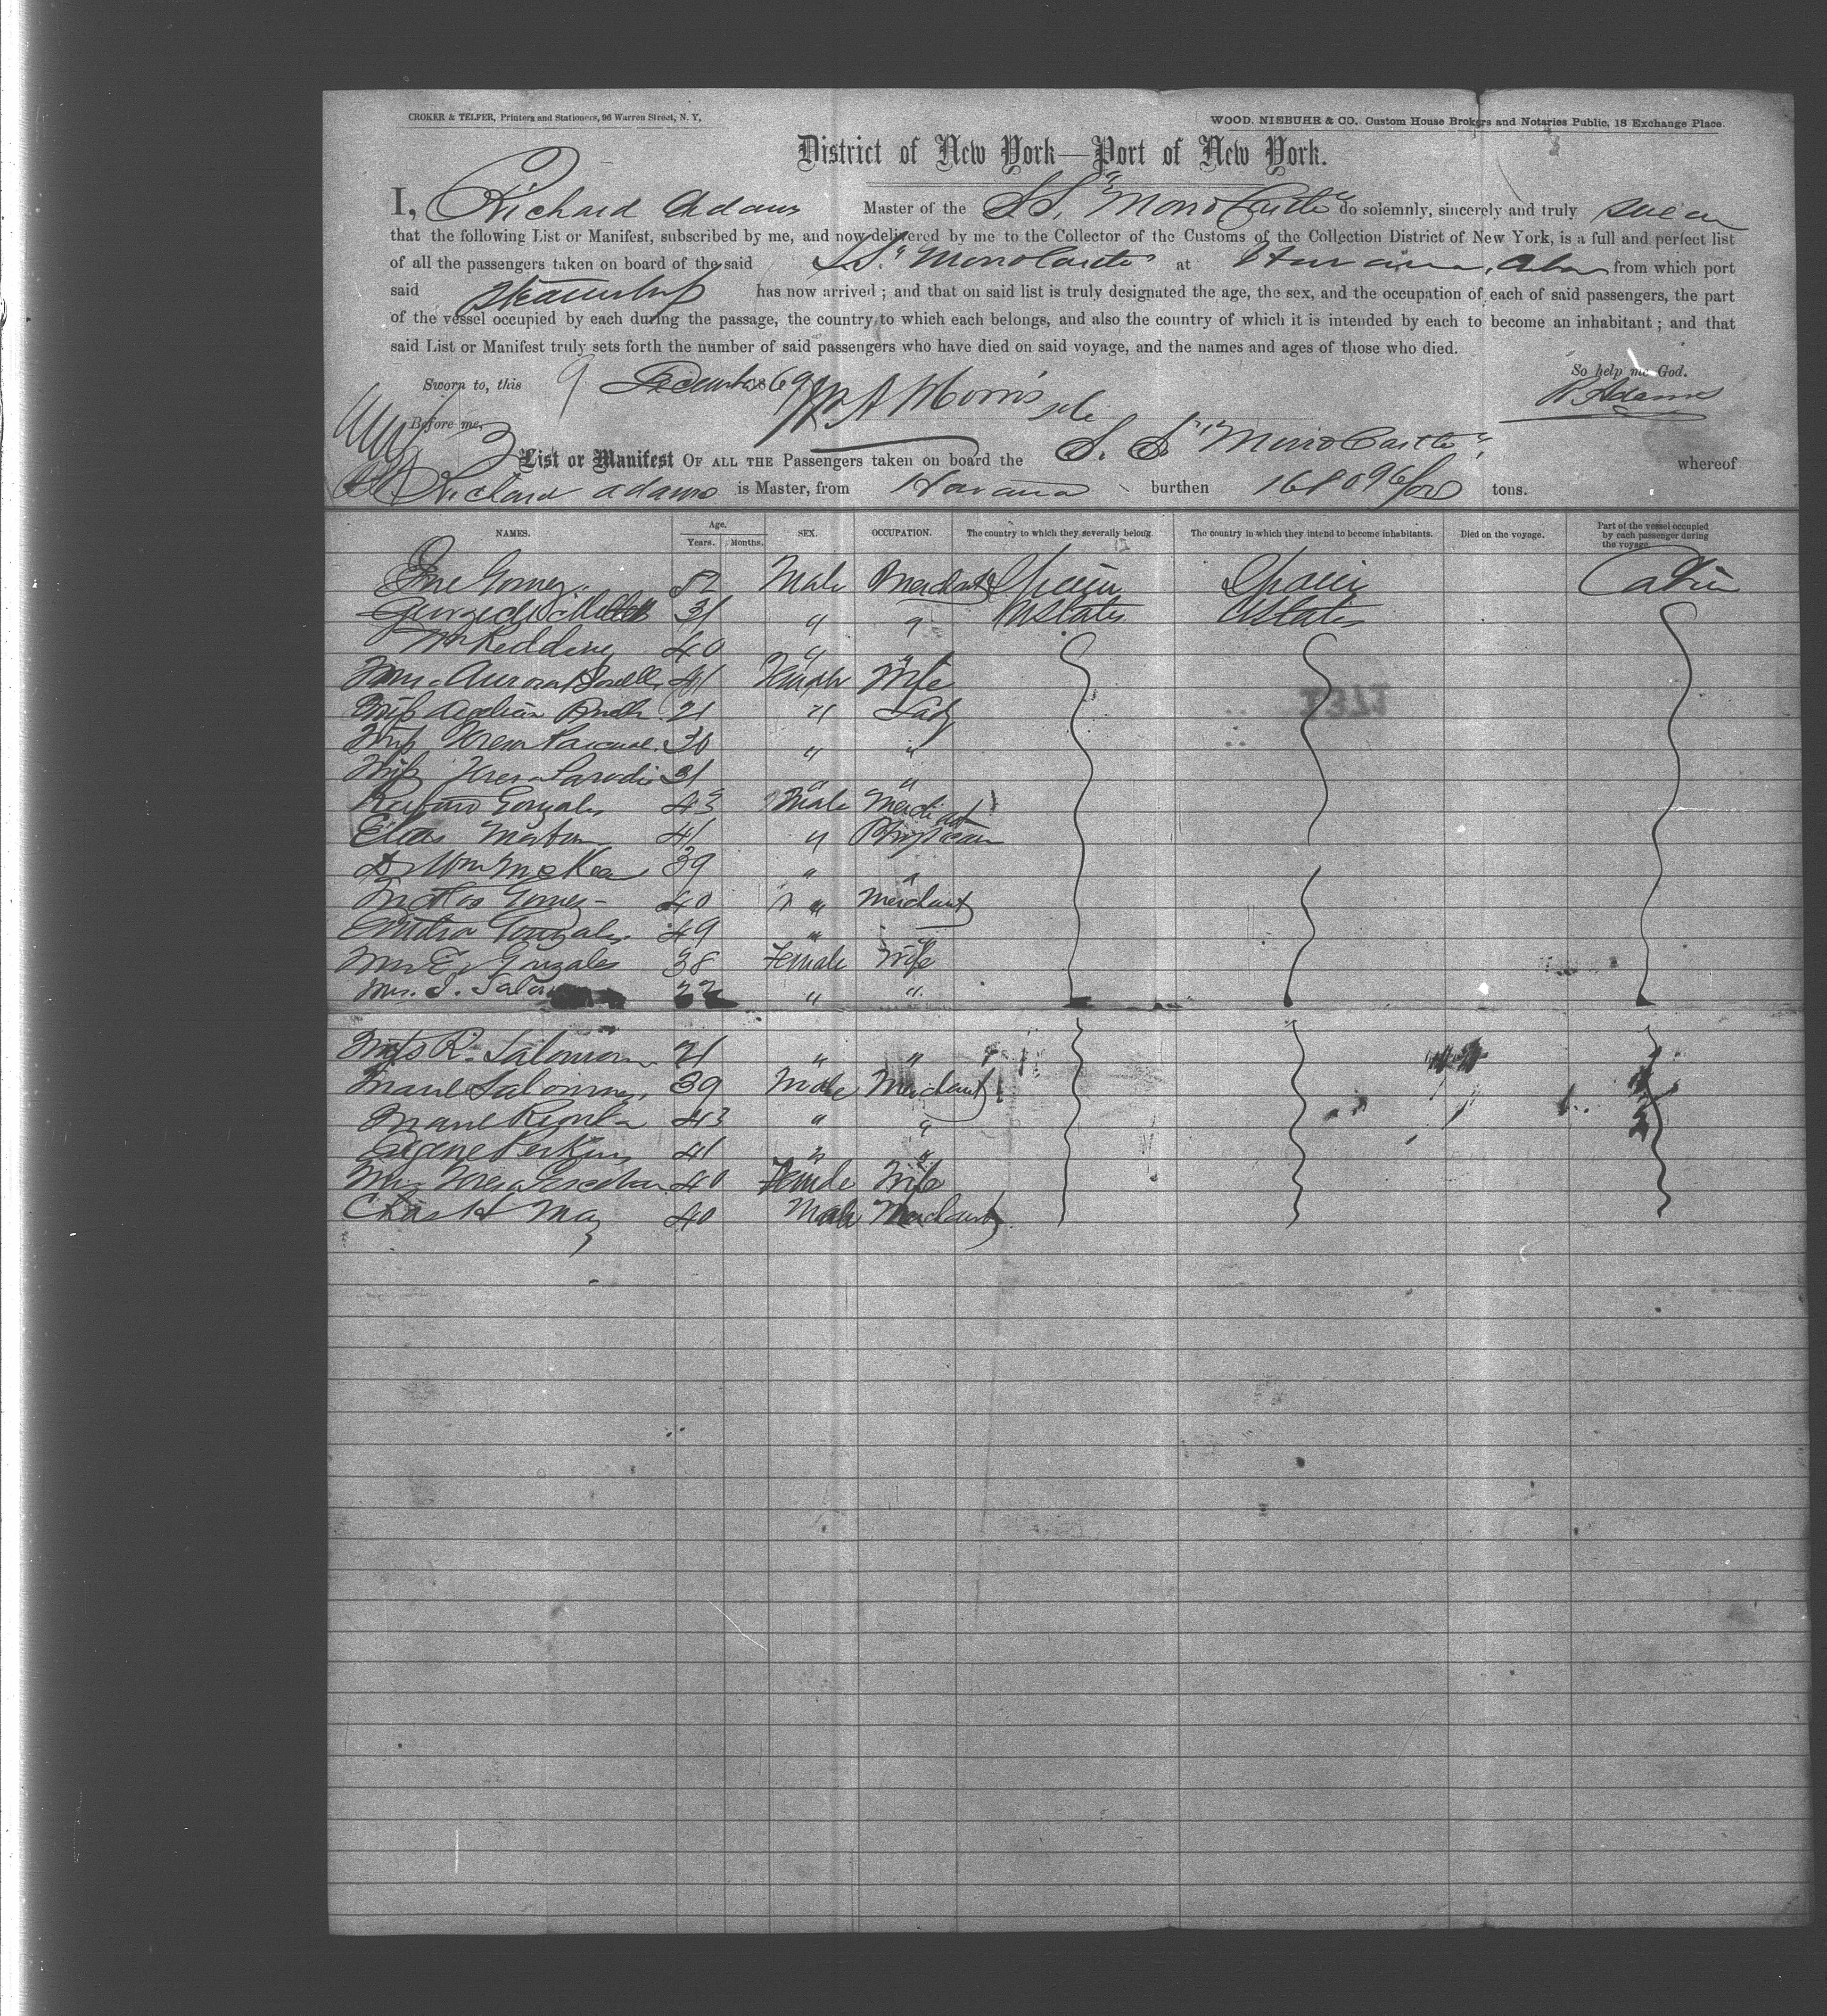 CROKER & TELFER, Printers and Stationers, 96 Warren Street, N. Y.
WOOD, NIEBUHR & CO., Custom House Brokers and Notaries Public, 18 Exchange Place.
District of New York—Port of New York.
I, Richard Adams Master of the SS. "Morro Castle" do solemnly, sincerely and truly swear
that the following List or Manifest, subscribed by me, and now delivered by me to the Collector of the Customs of the Collection District of New York, is a full and perfect list
of all the passengers taken on board of the said SS. "Morro Castle" at Havana, from which port
said Steamship has now arrived ; and that on said list is truly designated the age, the sex, and the occupation of each of said passengers, the part
of the vessel occupied by each during the passage, the country to which each belongs, and also the country of which it is intended by each to become an inhabitant ; and that
said List or Manifest truly sets forth the number of said passengers who have died on said voyage, and the names and ages of those who died.
Sworn to, this 9 December 1869 So help me God.
Before me, Morris R Adams
List or Manifest OF ALL THE Passengers taken on board the S. S. "Morro Castle" whereof
Richard Adams is Master, from Havana burthen 1680 96/100 tons.
NAMES. Age. Years. Months. SEX. OCCUPATION. The country to which they severally belong. The country in which they intend to become inhabitants. Died on the voyage. Part of the vessel occupied by each passenger during the voyage.
Gomez 52 Male Merchant Spain Spain Cabin
31 " " UStates UStates
Wm Redding 40 " "
Mrs Aurora 41 Female Wife
Miss 21 " Lady
Miss Teresa Pascual 30 " "
Miss 31 " "
Gonzales 43 Male Merchant
Elias 41 " Physician
Dr Wm McKee 39 " "
Gomez 40 " Merchant
Gonzales 49 " "
Mrs E. Gonzales 38 Female Wife
Mrs. S. 22 " "
Miss R. Salomon 21 " "
Salomon 39 Male Merchant
43 " "
Eugene Perkins 41 " "
Mrs Teresa 40 Female Wife
Chas H May 40 Male Merchant